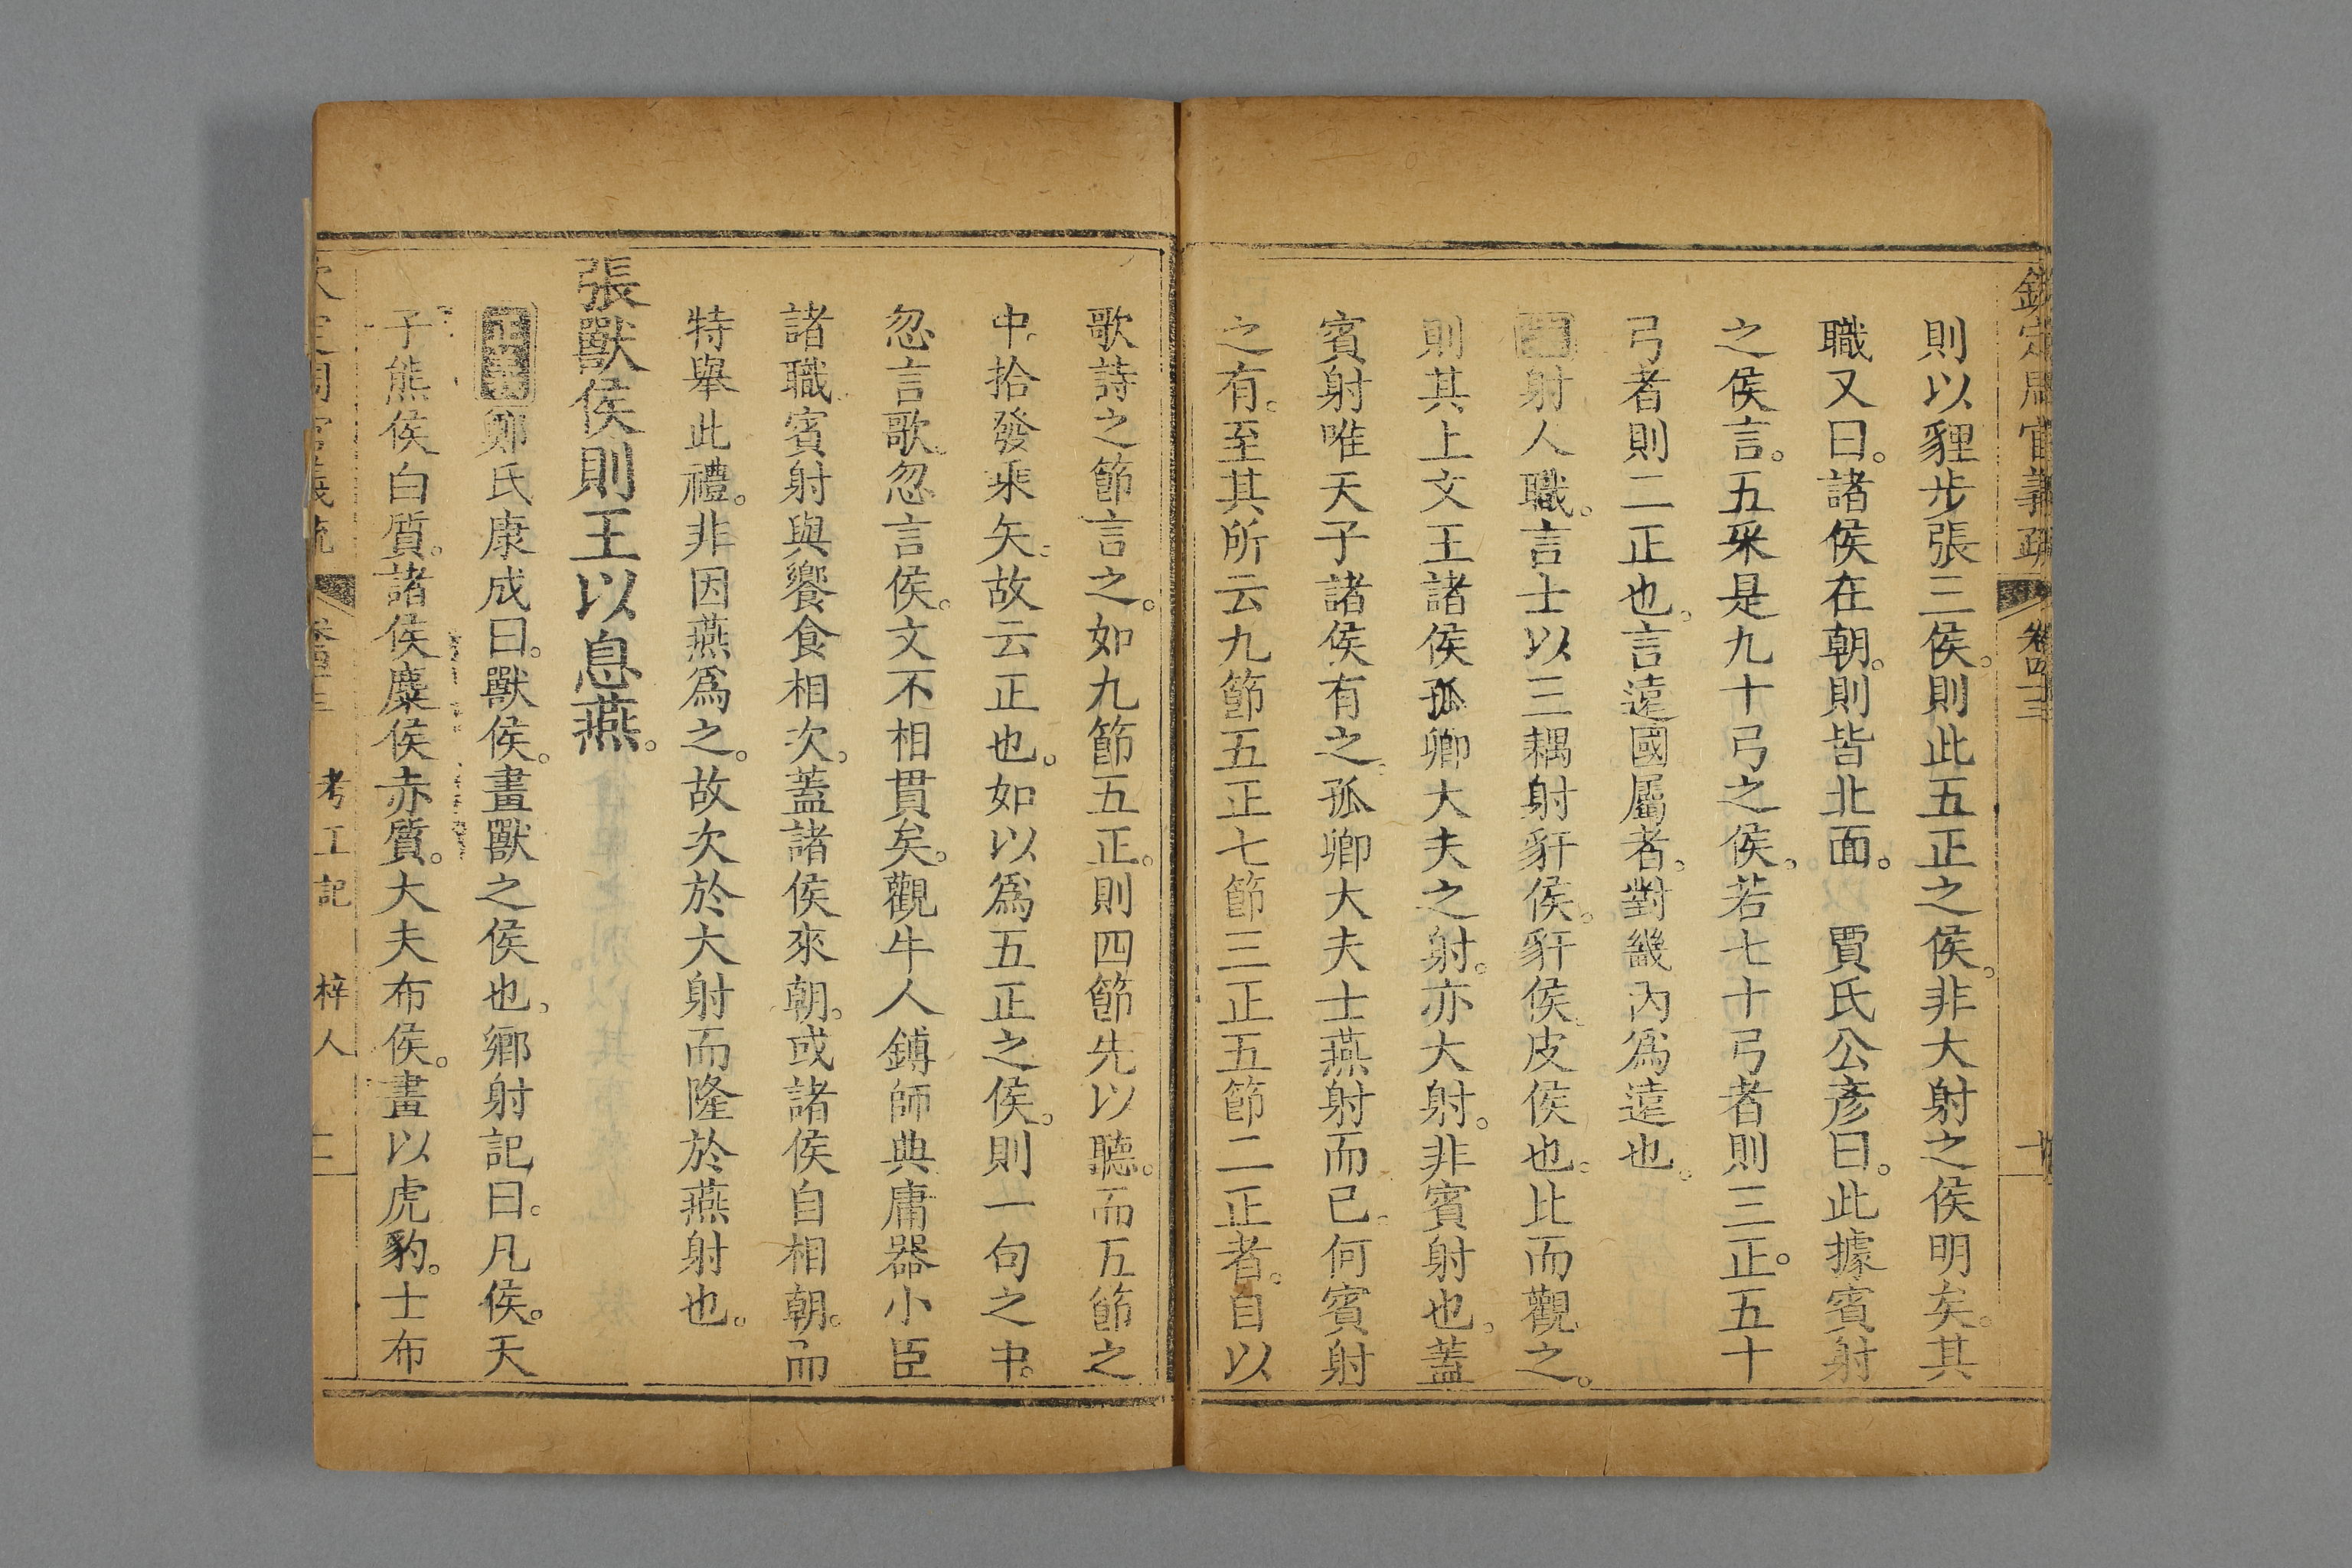 欽定周官義疏 卷四十三
則以貍步張三侯。則此五正之侯。非大射之侯明矣。其
職又曰。諸侯在朝。則皆北面。 賈氏公彥曰。此據賓射
之侯言。五采是九十弓之侯。若七十弓者則三正。五十
弓者則二正也。言遠國屬者。對畿內爲遠也。
射人職。言士以三耦射豻侯。豻侯皮侯也。比而觀之。
則其上文王諸侯孤卿大夫之射。亦大射。非賓射也。蓋
賓射唯天子諸侯有之。孤卿大夫士燕射而已。何賓射
之有。至其所云九節五正七節三正五節二正者。自以
歌詩之節言之。如九節五正。則四節先以聽。而五節之
中。拾發乘矢。故云正也。如以爲五正之侯。則一句之中。
忽言歌。忽言侯。文不相貫矣。觀牛人鎛師典庸器小臣
諸職賓射與饗食相次。蓋諸侯來朝。或諸侯自相朝。而
特舉此禮。非因燕爲之。故次於大射而隆於燕射也。
張獸侯則王以息燕。
正義鄭氏康成曰。獸侯。畫獸之侯也。鄉射記曰。凡侯。天
子熊侯白質。諸侯麋侯赤質。大夫布侯。畫以虎豹。士布
欽定周官義疏 卷四十三 考工記 梓人